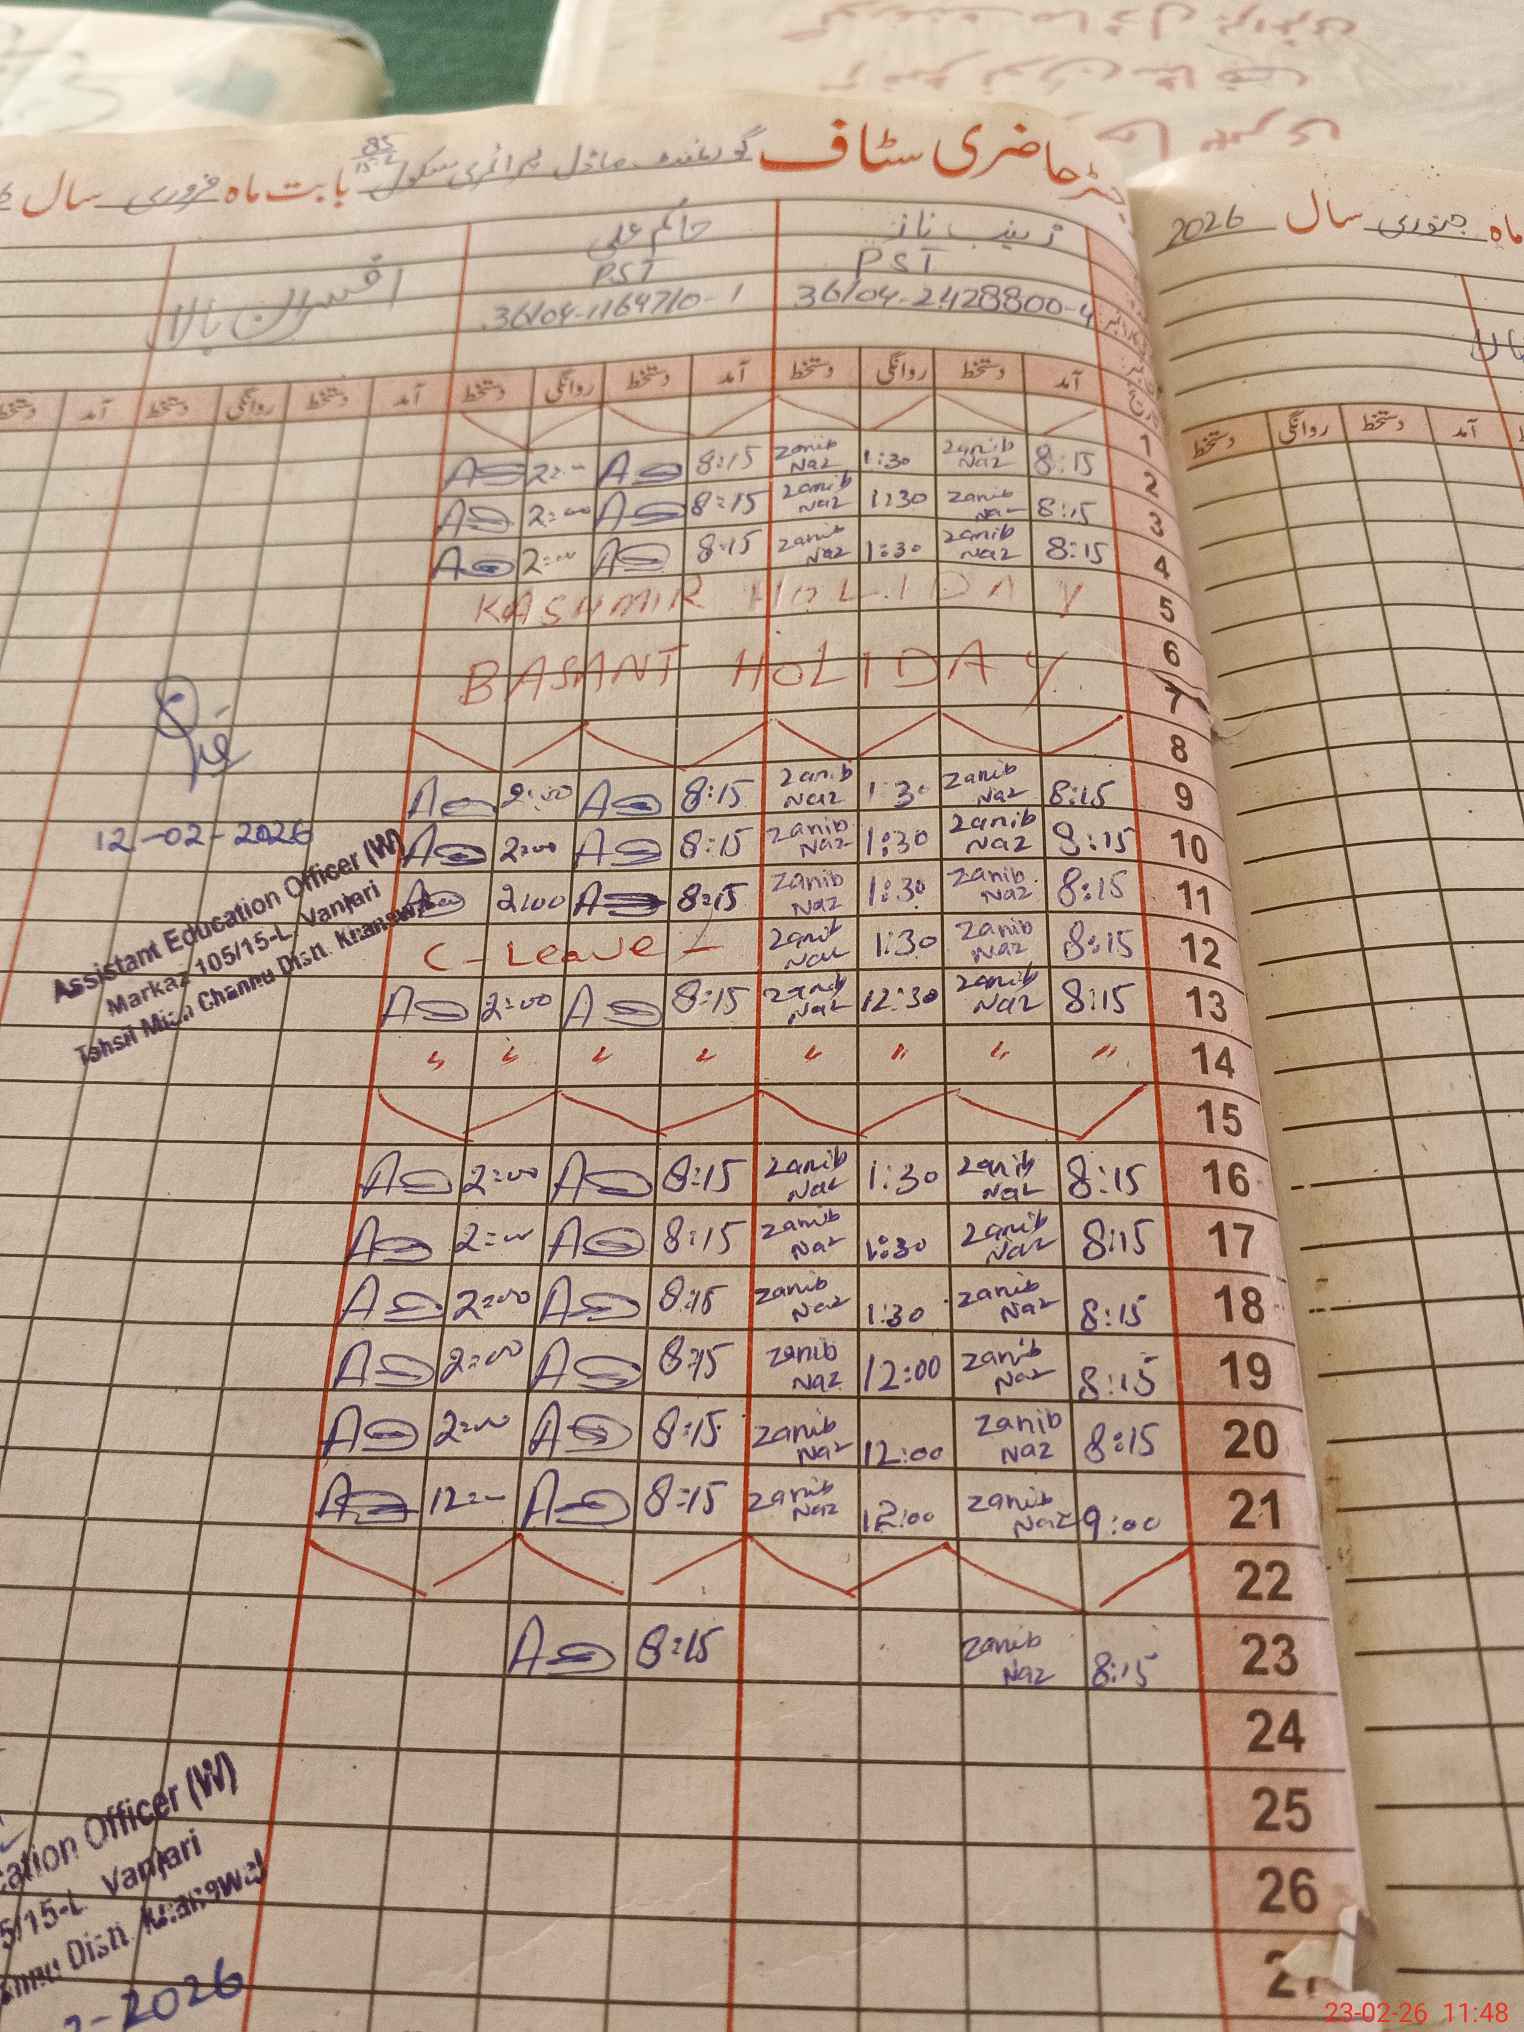 رجسٹر حاضری سٹاف گورنمنٹ ماڈل پرائمری سکول 85/15-L بابت ماہ فروری سال
زینب ناز
حاکم علی
افسران بالا
PST
PST
36104-2428800-4
36104-1164710-1
آمد دستخط روانگی دستخط آمد دستخط روانگی دستخط آمد دستخط روانگی دستخط آمد دستخط
1
2:00 8:15 Zanib Naz 1:30 Zanib Naz 8:15 2
2:00 8:15 Zanib Naz 1:30 Zanib Naz 8:15 3
2:00 8:15 Zanib Naz 1:30 Zanib Naz 8:15 4
KASHMIR HOLIDAY 5
6
BASANT HOLIDAY 7
8
2:00 8:15 Zanib Naz 1:30 Zanib Naz 8:15 9
2:00 8:15 Zanib Naz 1:30 Zanib Naz 8:15 10
2:00 8:15 Zanib Naz 1:30 Zanib Naz 8:15 11
C - Leave - Zanib Naz 1:30 Zanib Naz 8:15 12
2:00 8:15 Zanib Naz 12:30 Zanib Naz 8:15 13
" " " " " " " " 14
15
2:00 8:15 Zanib Naz 1:30 Zanib Naz 8:15 16
2:00 8:15 Zanib Naz 1:30 Zanib Naz 8:15 17
2:00 8:15 Zanib Naz 1:30 Zanib Naz 8:15 18
2:00 8:15 Zanib Naz 12:00 Zanib Naz 8:15 19
2:00 8:15 Zanib Naz 12:00 Zanib Naz 8:15 20
12:00 8:15 Zanib Naz 12:00 Zanib Naz 9:00 21
22
8:15 Zanib Naz 8:15 23
24
25
26
27
12-02-2026
Assistant Education Officer (W)
Markaz 105/15-L Vanjari
Tehsil Mian Channu Distt. Khanewal
cation Officer (W)
5/15-L Vanjari
annu Distt. Khanewal
2-2026
ماہ جنوری سال 2026
بالا
آمد دستخط روانگی دستخط
23-02-26 11:48